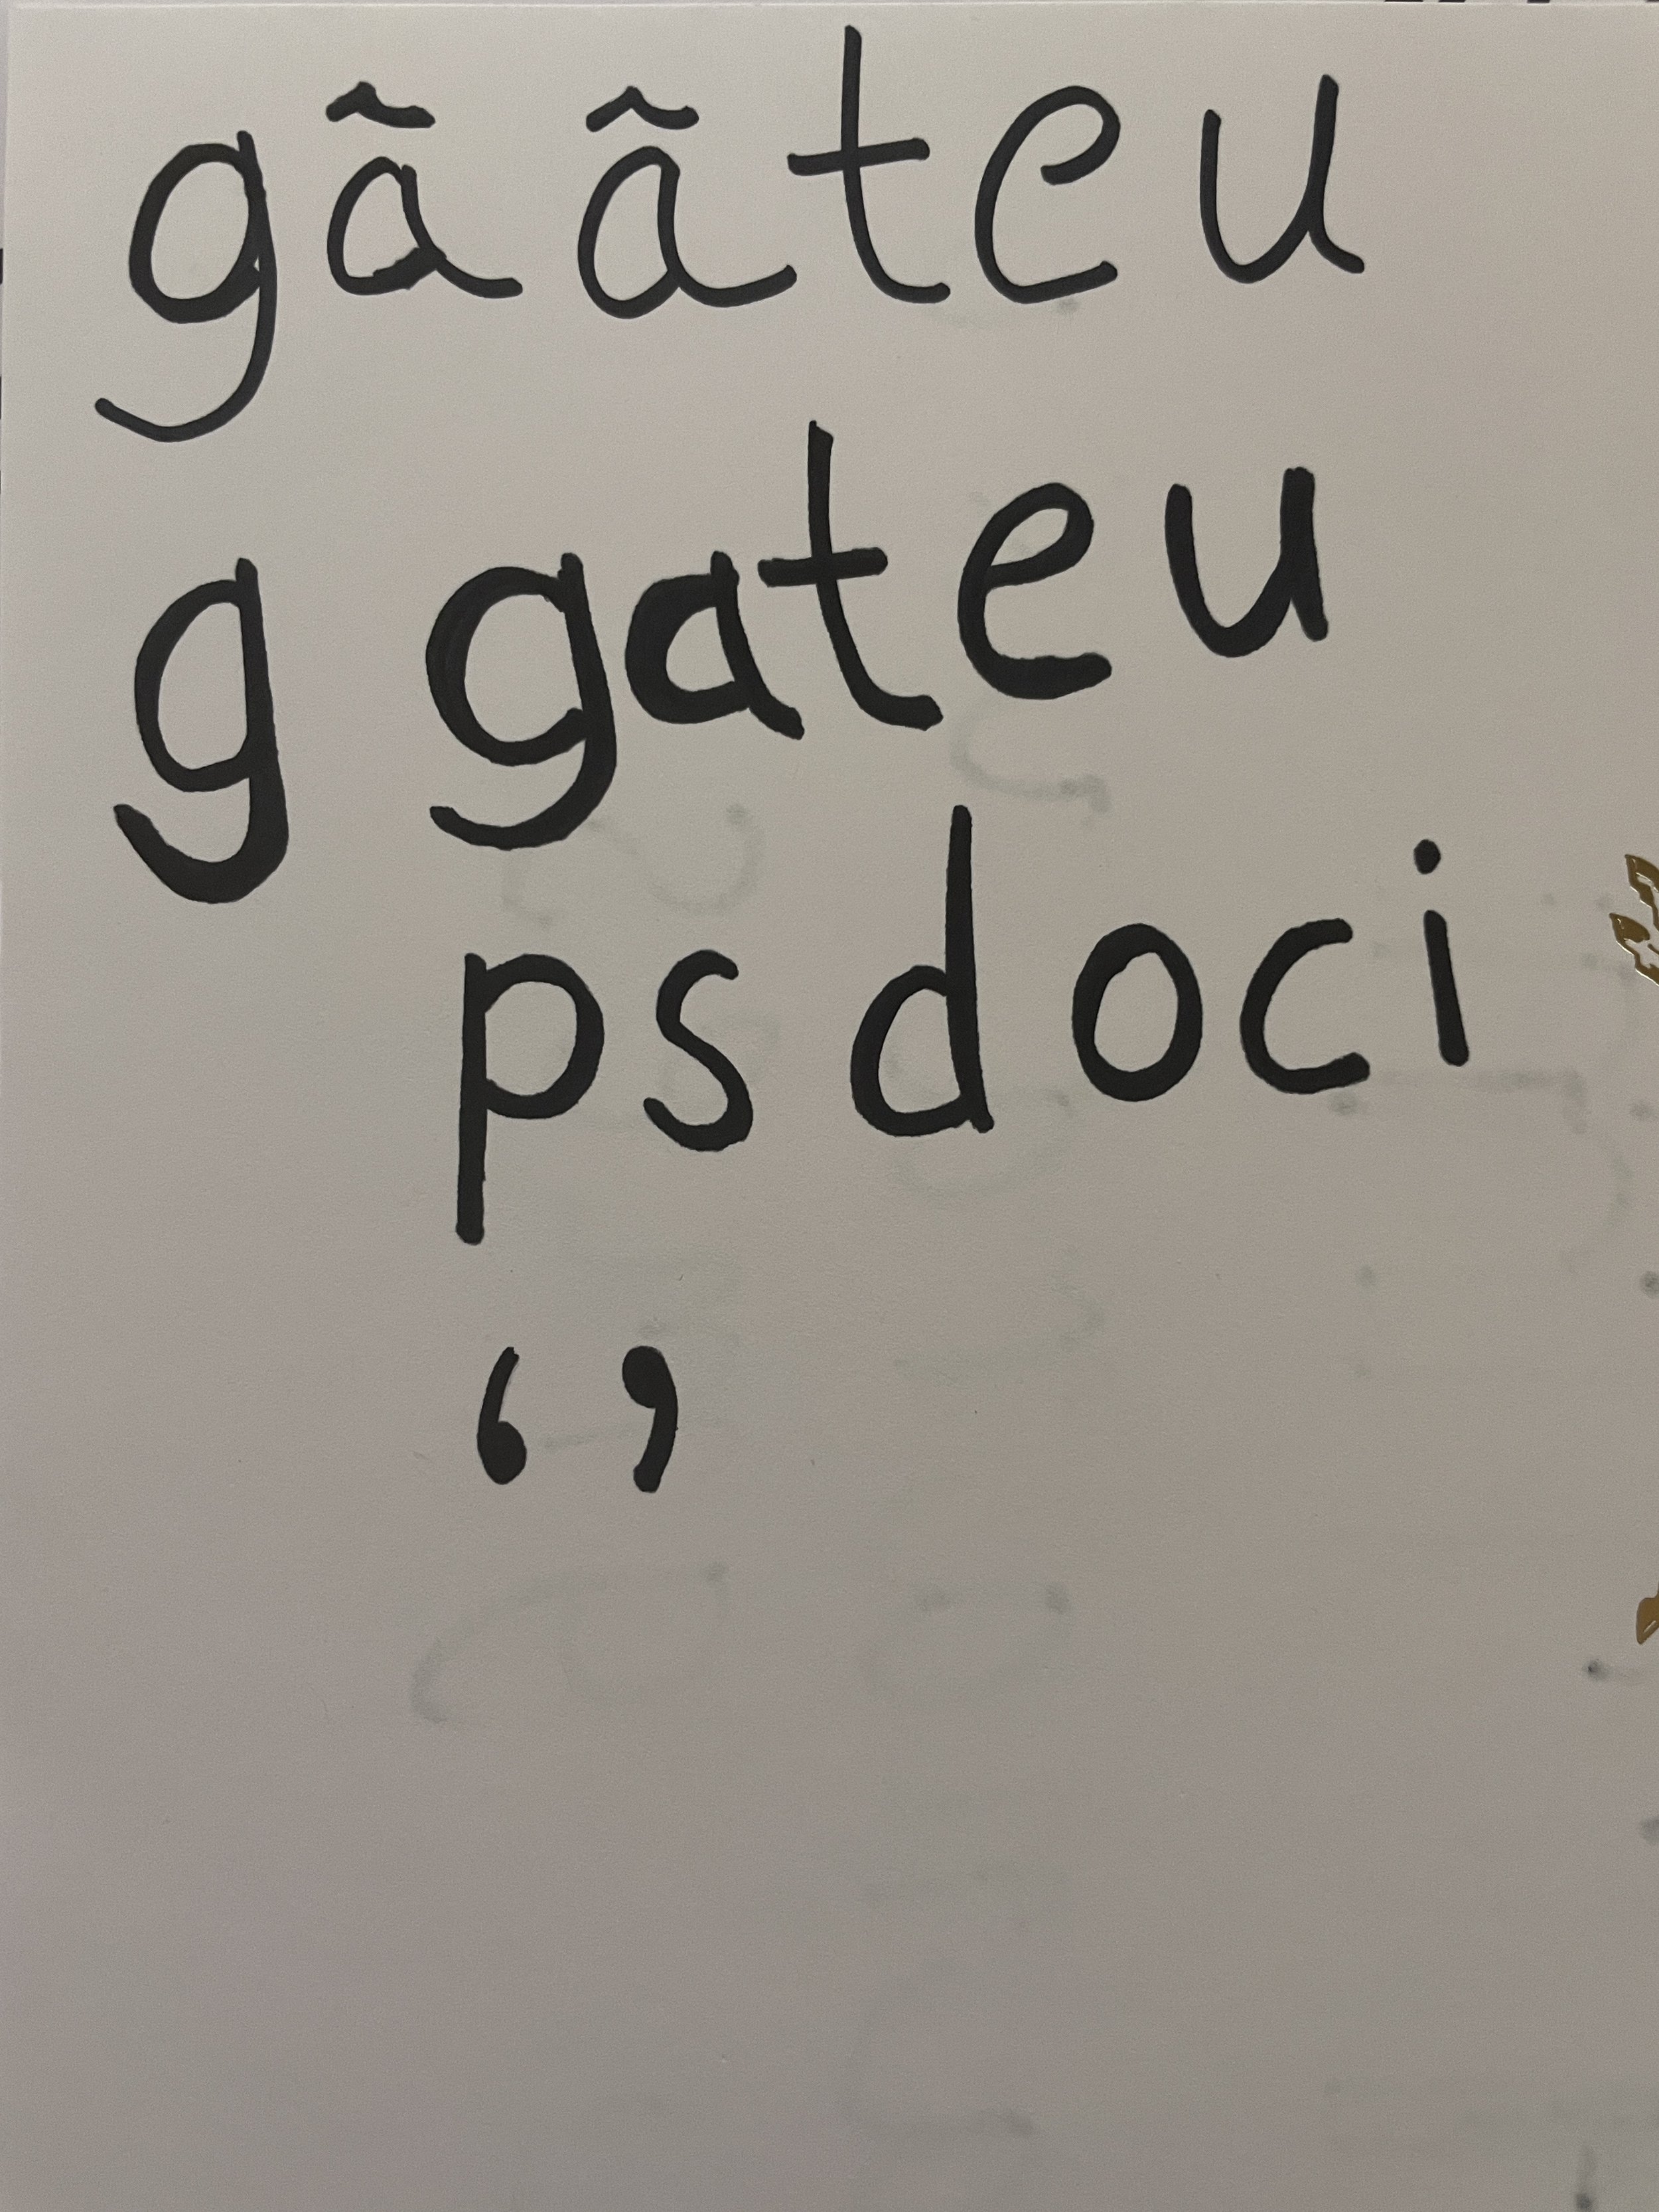 gââteu
g gateu
psdoci
‘ ’